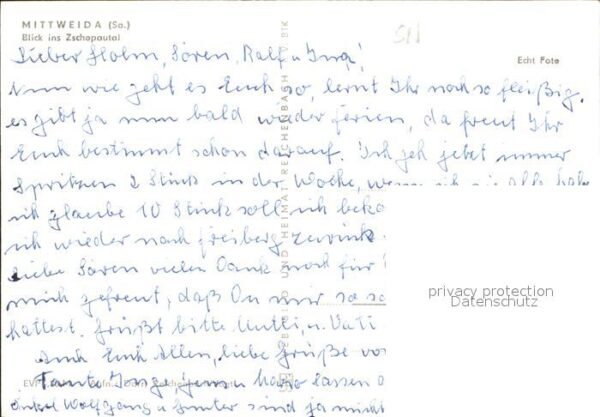 MITTWEIDA (Sa.)
Blick ins Zschopautal
Echt Foto
Lieber Holm, Sören, Ralf u Inga!
Nun wie geht es Euch so, lernt Ihr noch so fleißig,
es gibt ja nun bald wieder ferien, da freut Ihr
Euch bestimmt schon darauf. Ich jeh jetzt immer
Spritzen 2 Stück in der Woche,
ich glaube 10 Stück soll ich
ich wieder nach Freiberg zurück.
liebe Sören vielen Dank noch für
mich gefreut, daß Du mir so
hattest. Grüßt bitte Mutti, u. Vati
Euch Allen, liebe Grüße
Tante lassen
Onkel Wolfgang u Günter sind ja nicht
BILD UND HEIMAT REICHENBACH I. V. BTK
privacy protection
Datenschutz